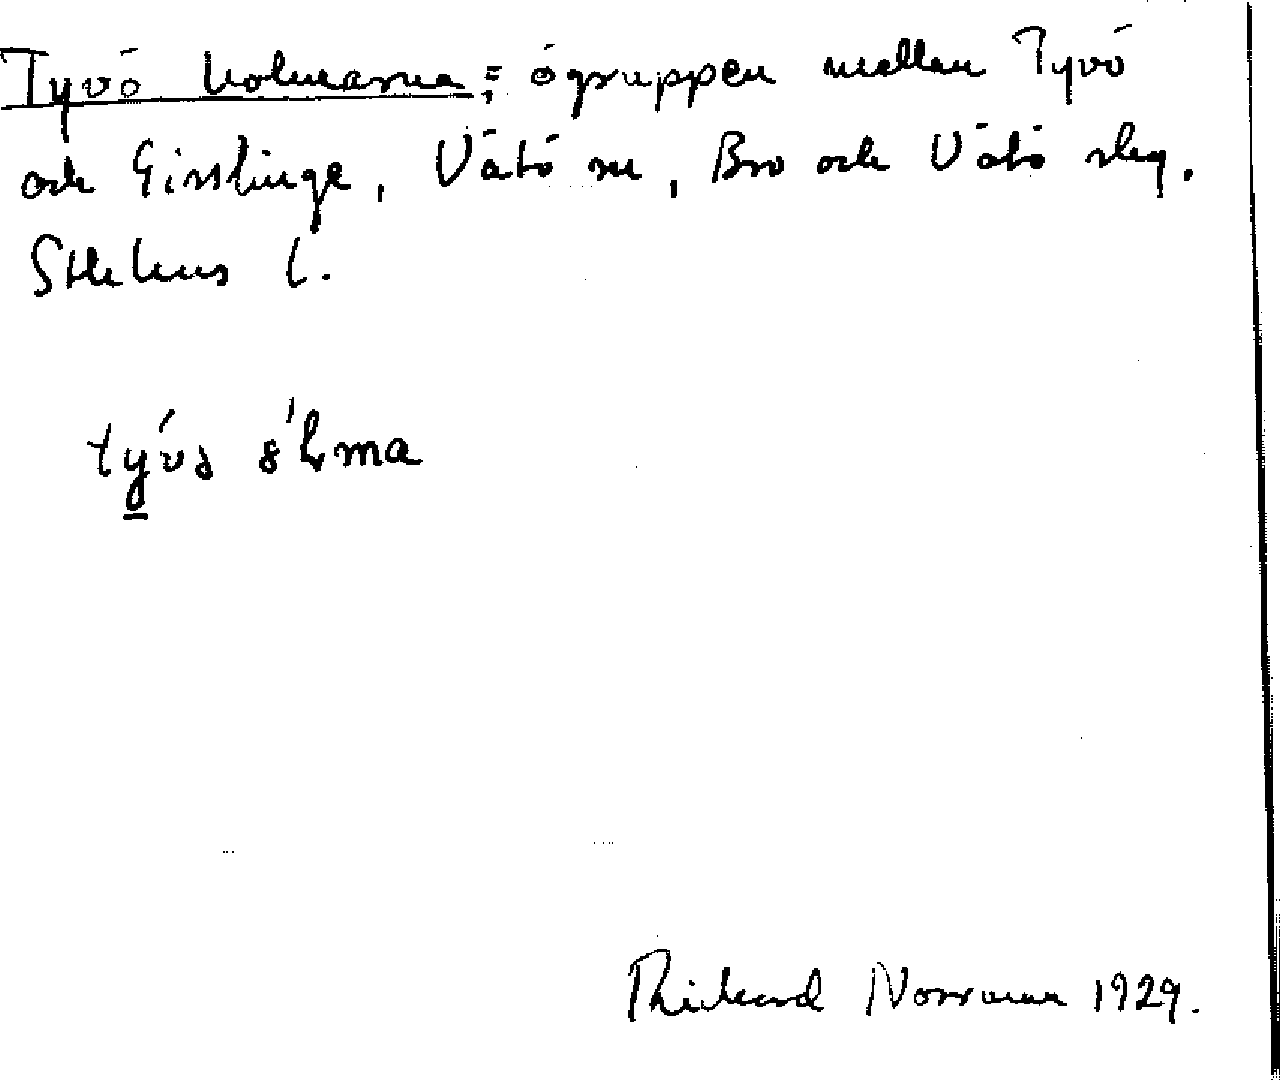 Tyvö holmarna; ögruppen mellan Tyvö
och Gisslinge, Vätö sn, Bro och Vätö slg.
Sthlms l.
Rickard Norrman 1929.